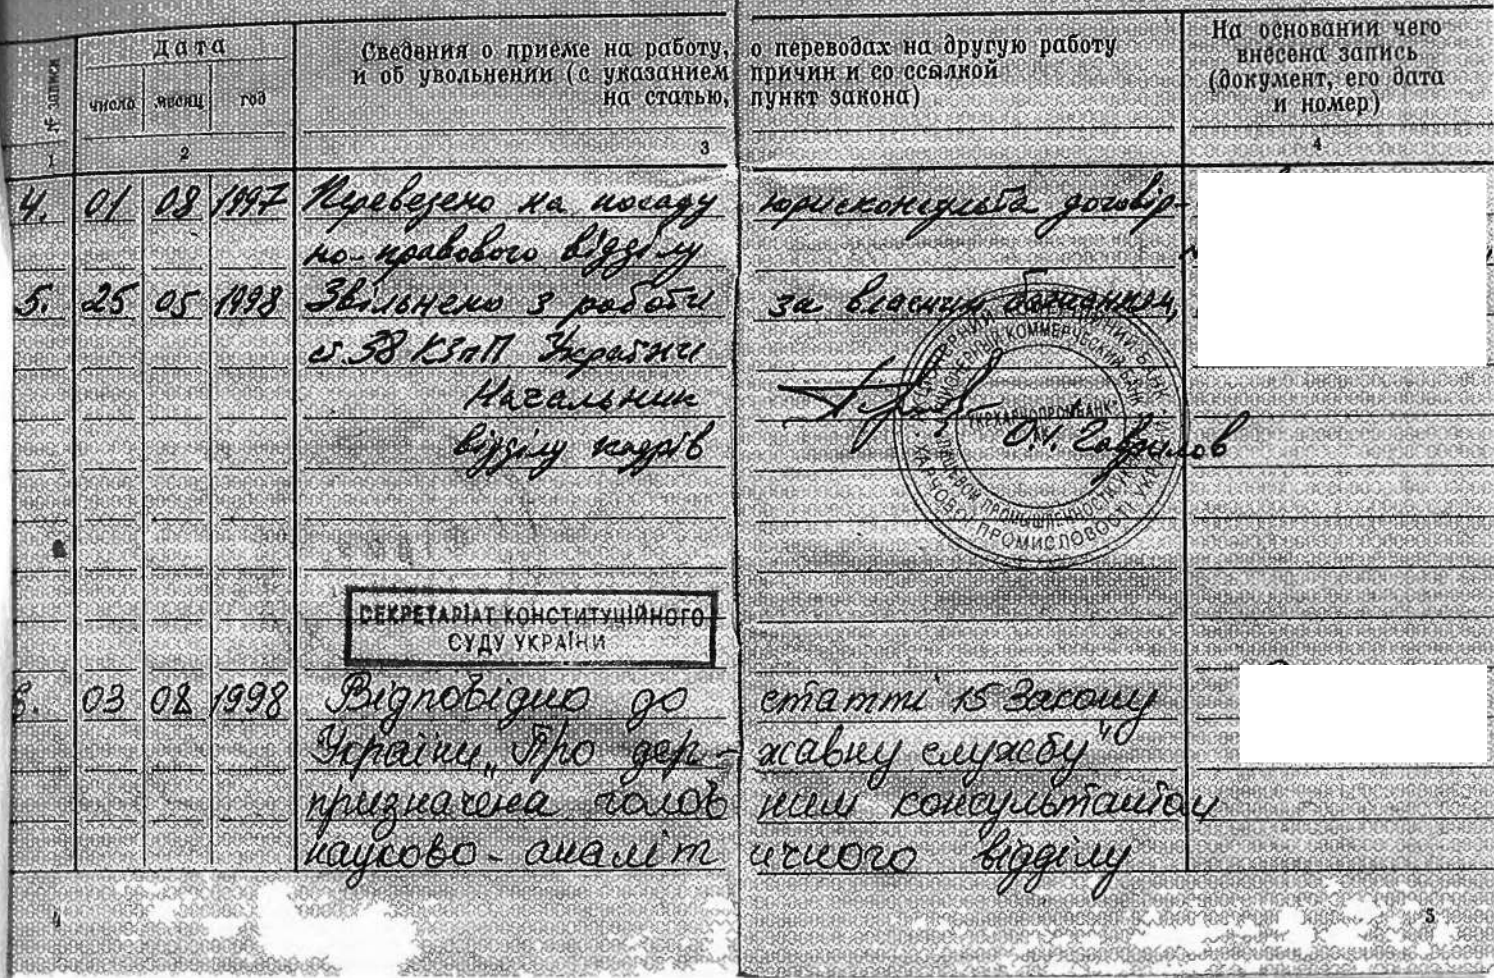 № записи
Дата
число месяц год
Сведения о приеме на работу, о переводах на другую работу
и об увольнении (с указанием причин и со ссылкой
на статью, пункт закона)
На основании чего
внесена запись
(документ, его дата
и номер)
1 2 3 4
4. 01 08 1997 Переведено на посаду юрисконсульта договір-
но-правового відділу
5. 25 05 1998 Звільнено з роботи за власним бажанням,
ст. 38 КЗпП України
Начальник
відділу кадрів О.І. Гаврилов
АКЦІОНЕРНИЙ КОМЕРЦІЙНИЙ БАНК
ХАРЧОВОЇ ПРОМИСЛОВОСТІ УКР
АКЦИОНЕРНЫЙ КОММЕРЧЕСКИЙ БАНК
ПИЩЕВОЙ ПРОМЫШЛЕННОСТИ УК
"УКРХАРЧОПРОМБАНК"
СЕКРЕТАРІАТ КОНСТИТУЦІЙНОГО
СУДУ УКРАЇНИ
6. 03 08 1998 Відповідно до статті 15 Закону
України „Про дер-жавну службу"
призначена голов ним консультантом
науково-аналіт ичного відділу
4 5